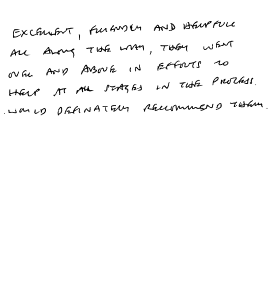 EXCELLENT, FRIENDLY AND HELPFULL
ALL ALONG THE WAY, THEY WENT
OVER AND ABOVE IN EFFORTS TO
HELP AT ALL STAGES IN THE PROCESS.
WOULD DEFINATELY RECOMMEND THEM.